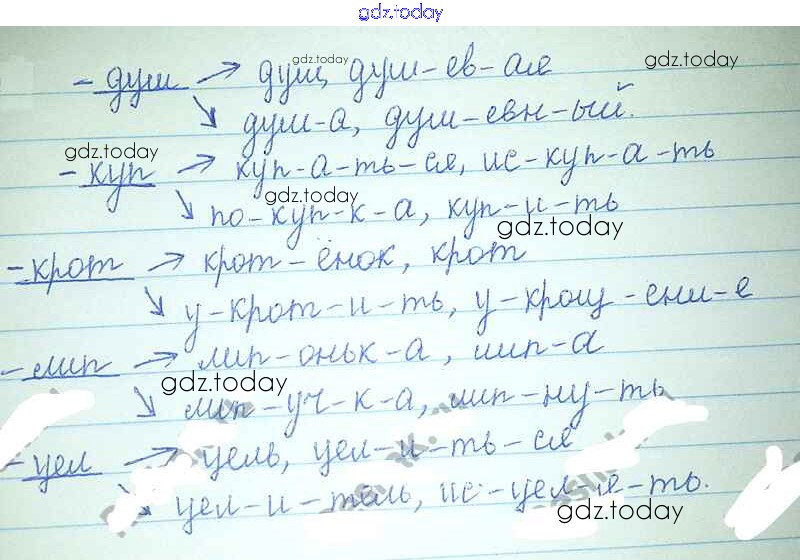 gdz.today
- душ → душ, душ-ев-ая
↘ душ-а, душ-евн-ый.
- куп → куп-а-ть-ся, ис-куп-а-ть
↘ по-куп-к-а, куп-и-ть
- крот → крот-ёнок, крот
↘ у-крот-и-ть, у-крощ-ени-е
- лип → лип-оньк-а, лип-а
↘ лип-уч-к-а, лип-ну-ть
- цел → цель, цел-и-ть-ся
↘ цел-и-тель, ис-цел-я-ть.
gdz.today
gdz.today
gdz.today
gdz.today
gdz.today
gdz.today
gdz.today